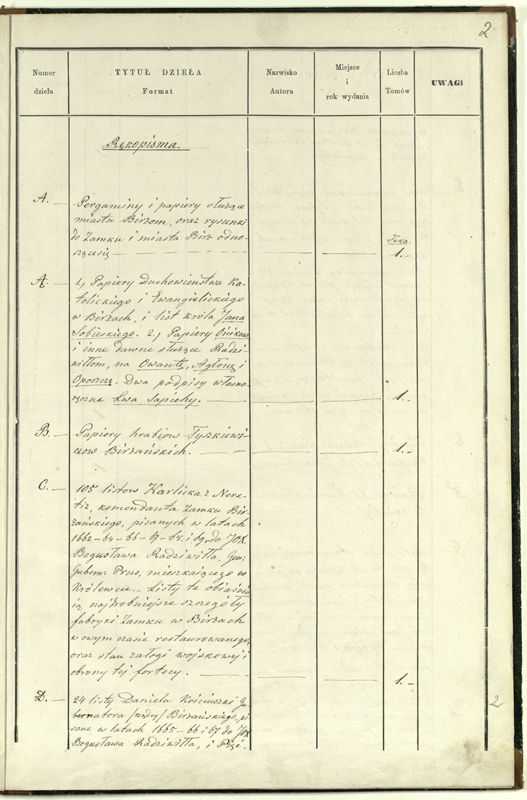 2
Numer dzieła
TYTUŁ DZIEŁA Format
Nazwisko Autora
Miejsce i rok wydania
Liczba Tomów
UWAGI
Rękopisma.
A. — Pergaminy i papiery służące
miastu Birżom, oraz rysunki
do Zamku i miasta Birż odno-
szące się — Teka. 1.-
A. — 1, Papiery Duchowieństwa Ka-
tolickiego i Ewangielickiego
w Birżach, i list króla Jana
Sobieskiego. 2, Papiery
i inne dawne służące Radzi-
wiłłom, na Owantę, i
Dwa podpisy własno-
ręczne Lwa Sapiehy. — 1.-
B. — Papiery hrabiów Tyszkiewi-
czow Birżańskich. — 1.-
C. — 105 listow Karlicka z Nere-
tiz, komendanta Zamku Bir-
żańskiego, pisanych w latach
1662-64-66-67-68 i 69, do
Bogusława Radziwiłła, Gen:
Gubern: Prus, mieszkaiącego w
Królewcu. - Listy te obiaśnia
ią najdrobniejsze szczegóły
fabryki Zamku w Birżach
w owym czasie restaurowanego,
oraz stan załogi wojskowej i
obrony tej fortecy. — 1.-
D. — 24 listy Daniela Kościuszki Gu-
bernatora Birżańskiego, pi
sane w latach 1665-66 i 67 do
Bogusława Radziwiłła, i
2